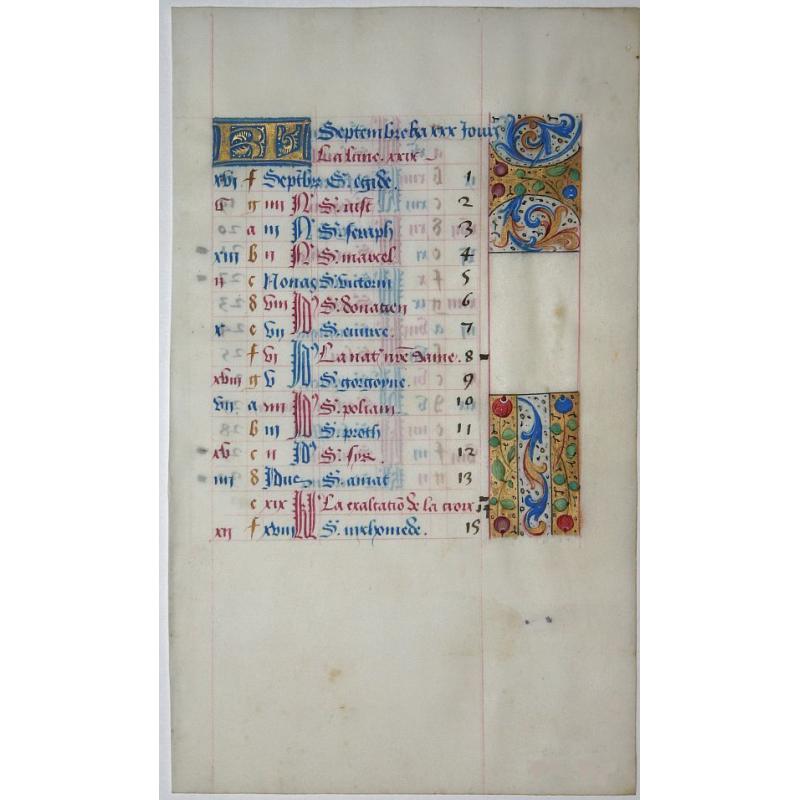 KL Septembre ha xxx Jours
La lune xxix
xvi f Septbr̃ S. egide. 1
v g iiii N S. iust 2
a iii N S. seraph 3
xiii b ii N S. marcel 4
ii c Nonas S. victorin 5
d viii Id S. donatien 6
x e vii Id S. 7
f vi Id La nat' nr̃e dame. 8
xviii g v Id S. gorgoyne. 9
vii a iiii Id S. poliani 10
b iii Id S. proth 11
xv c ii Id S. syr. 12
iiii d Idus S. amat 13
e xix kl La exaltatiō de la croix 14
xii f xviii kl S. nichomede. 15